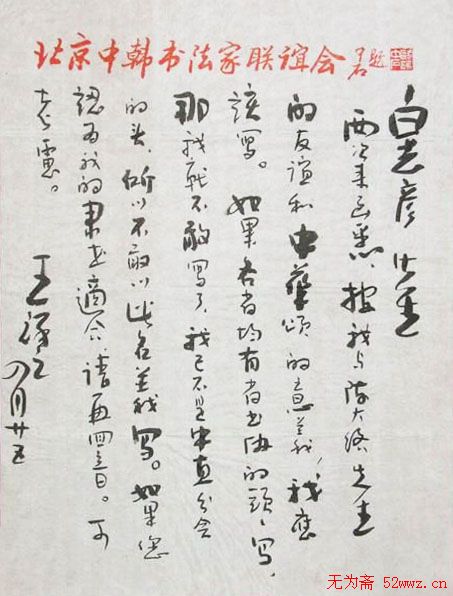 北京中韩书法家联谊会
白老彦
两次来函悉，按我与陈大络先生
的友谊和中华颂的意义，我应
该写。如果各省均有省书协的头头写，
那我就不敢写了，我已不是中直分会
的头，所以不敢以此名义我写。如果您
认为我的隶书适合，请再回音。可
考虑。
四月廿五
无为斋 52wwz.cn